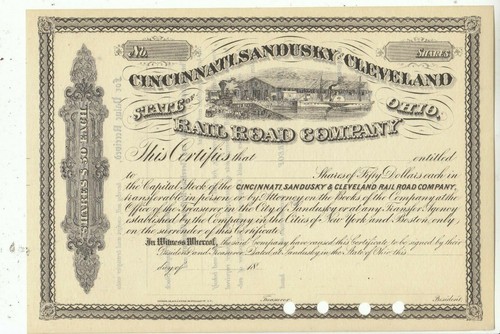 No.
Shares
CINCINNATI, SANDUSKY AND CLEVELAND
STATE of OHIO.
RAIL ROAD COMPANY
SHARES $50 EACH
This Certifies that entitled
to Shares of Fifty Dollars each in
the Capital Stock of the CINCINNATI, SANDUSKY & CLEVELAND RAIL ROAD COMPANY,
transferable in person or by Attorney on the Books of the Company at the
Office of the Treasurer in the City of Sandusky or at any Transfer Agency
established by the Company in the Cities of New York and Boston, only
on the surrender of this Certificate.
In Witness Whereof, the said Company have caused this Certificate to be signed by their
President and Treasurer Dated at Sandusky in the State of Ohio this
day of 18
Treasurer
President
For Value Received